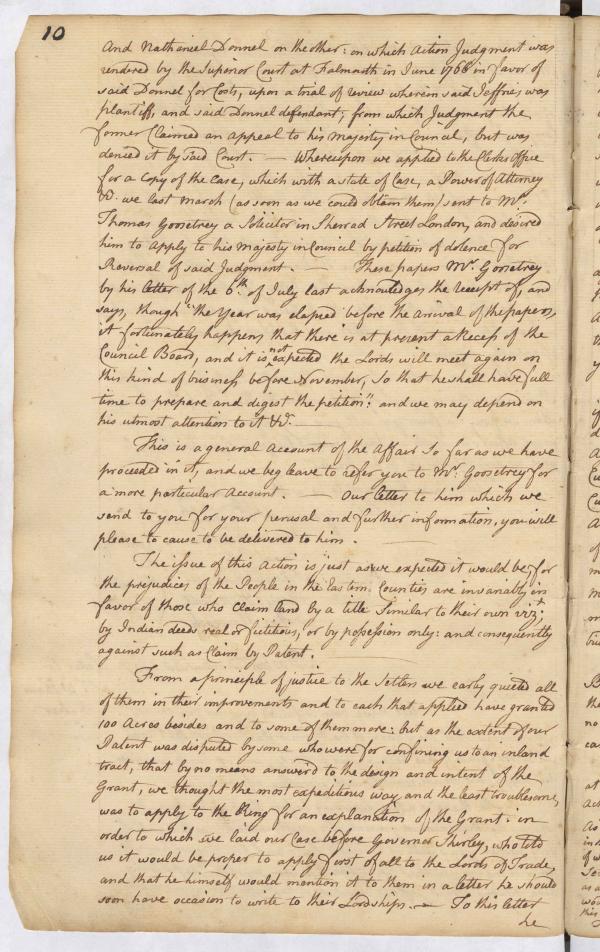 10
and Nathaniel Donnel on the other: on which Action Judgment was
rendered by the Superior Court at Falmouth in June 1768 in favor of
said Donnel for Costs, upon a trial of review wherein said Jeffries was
plantiff, and said Donnel defendant; from which Judgment the
former Claimed an appeal to his Majesty in Council, but was
denied it by said Court. — Whereupon we applied to the Clerks office
for a Copy of the Case, which with a state of Case, a Power of Attorney
&c. we last March (as soon as we could obtain them) sent to Mr.
Thomas Goostrey a Solicitor in Sherrad Street London, and desired
him to apply to his Majesty in Council by petition of dolence for
Reversal of said Judgment. — These papers Mr. Goostrey
by his letter of the 6th. of July last acknowledges the receipt of, and
says, though "the Year was elapsed before the arrival of the papers,
it fortunately happens that there is at present a Recess of the
Council Board, and it is not expected the Lords will meet again on
this kind of business before November, so that he shall have full
time to prepare and digest the petition": and we may depend on
his utmost attention to it &c. —
This is a general Account of the Affair so far as we have
proceeded in it, and we beg leave to refer you to Mr. Goostrey for
a more particular Account. — Our letter to him which we
send to you for your perusal and further information, you will
please to cause to be delivered to him. —
The issue of this Action is just as we expected it would be, for
the prejudices of the People in the Eastern Counties are invariably in
favor of those who Claim land by a title Similar to their own vizt.
by Indian deeds real or fictitious, or by possession only: and consequently
against such as Claim by Patent. —
From a principle of justice to the Setlers we early quieted all
of them in their improvements and to each that applied have granted
100 Acres besides and to some of them more: but as the extent of our
Patent was disputed by some who were for confining us to an inland
tract, that by no means answer'd to the design and intent of the
Grant, we thought the most expeditious way and the least troublesome,
was to apply to the King for an explanation of the Grant. in
order to which we laid our Case before Governor Shirley, who told
us it would be proper to apply first of all to the Lords of Trade,
and that he himself would mention it to them in a letter he should
soon have occasion to write to their Lordships. — To this letter
he